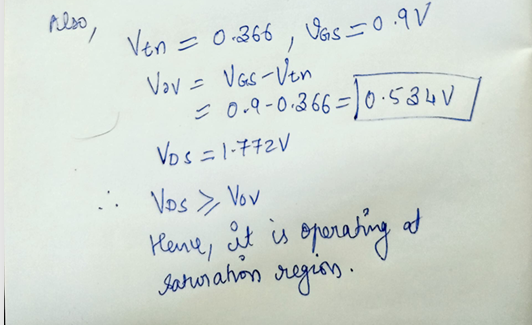 Also,
Vtn = 0.366 , VGS = 0.9V
VOV = VGS-Vtn
= 0.9-0.366= 0.534V
VDS = 1.772V
∴ VDS ⩾ VOV
Hence, it is operating at
saturation region.